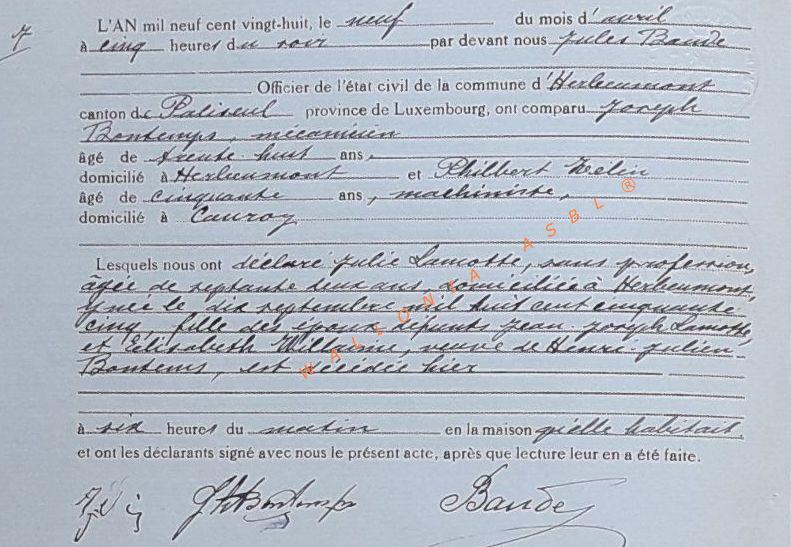 7
L'AN mil neuf cent vingt-huit, le neuf du mois d'avril
à cinq heures du soir par devant nous Jules Baude
Officier de l'état civil de la commune d'Herbeumont
canton de Paliseul province de Luxembourg, ont comparu Joseph
Bontemps, mécanicien
âgé de trente-huit ans,
domicilié à Herbeumont et Philbert Zélin
âgé de cinquante ans, machiniste,
domicilié à Cugnon
Lesquels nous ont déclaré Julie Lamotte, sans profession,
âgée de septante deux ans, domiciliée à Herbeumont,
y née le dix septembre mil huit cent cinquante
cinq, fille des époux défunts Jean-Joseph Lamotte
et Elisabeth Willaime, veuve de Henri-Julien
Bontems, est décédée hier
à six heures du matin en la maison qu'elle habitait.
et ont les déclarants signé avec nous le présent acte, après que lecture leur en a été faite.
Bontemps Baude
WALLONIA ASBL ®